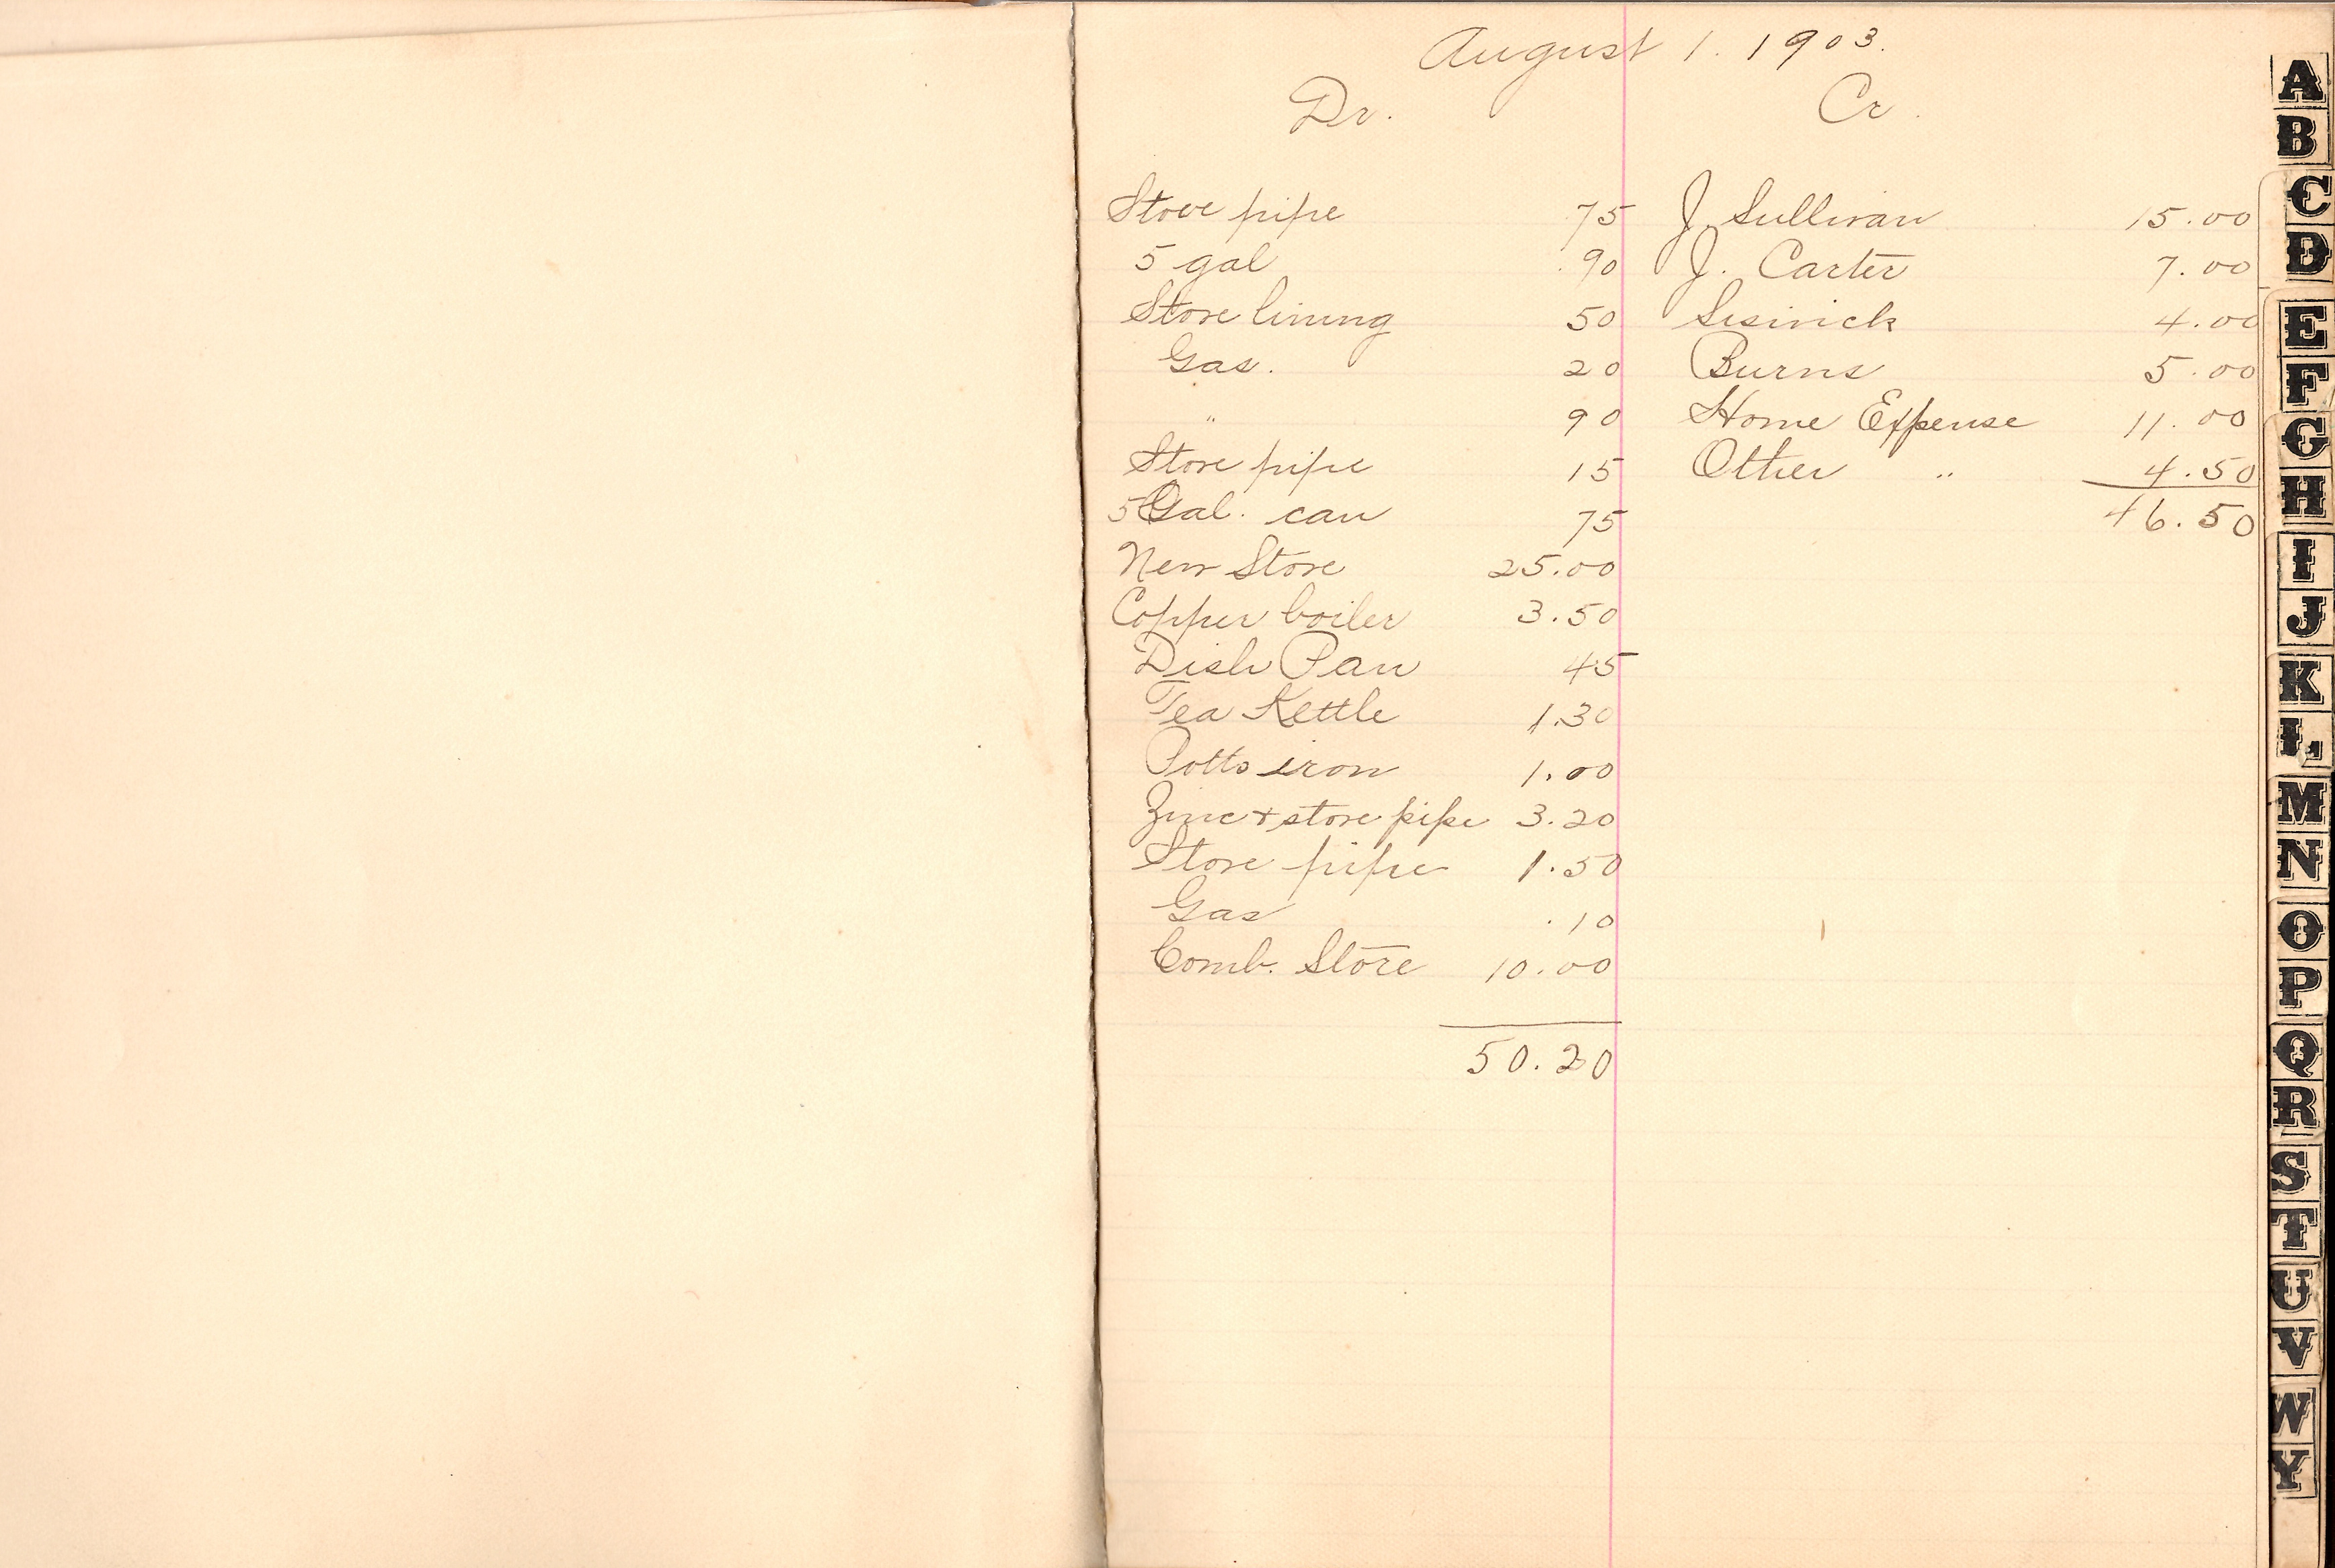 August 1. 1903.
Dr. Cr.
Stove pipe 75 J. Sullivan 15.00
5 gal .90 J. Carter 7.00
Stove lining 50 4.00
Gas. 20 Burns 5.00
" 90 Home Expense 11.00
Stove pipe 15 Other " 4.50
5 Gal. can 75 46.50
New Stove 25.00
Copper boiler 3.50
Dish Pan 45
Tea Kettle 1.30
Potts iron 1.00
Zinc + stove pipe 3.20
Stove pipe 1.50
Gas .10
Comb. Stove 10.00
50.20
A
B
C
D
E
F
G
H
I
J
K
L
M
N
O
P
Q
R
S
T
U
V
W
Y